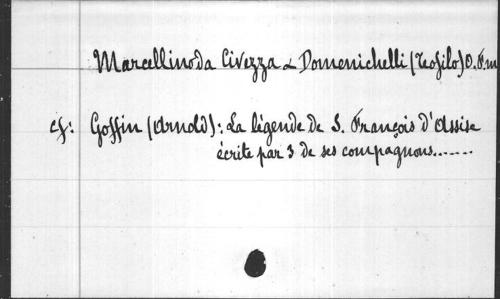 Marcellino da Civezza & Domenichelli (Teofilo) O.F.M
cf: Goffin (Arnold): La légende de S. François d'Assise
écrite par 3 de ses compagnons.......